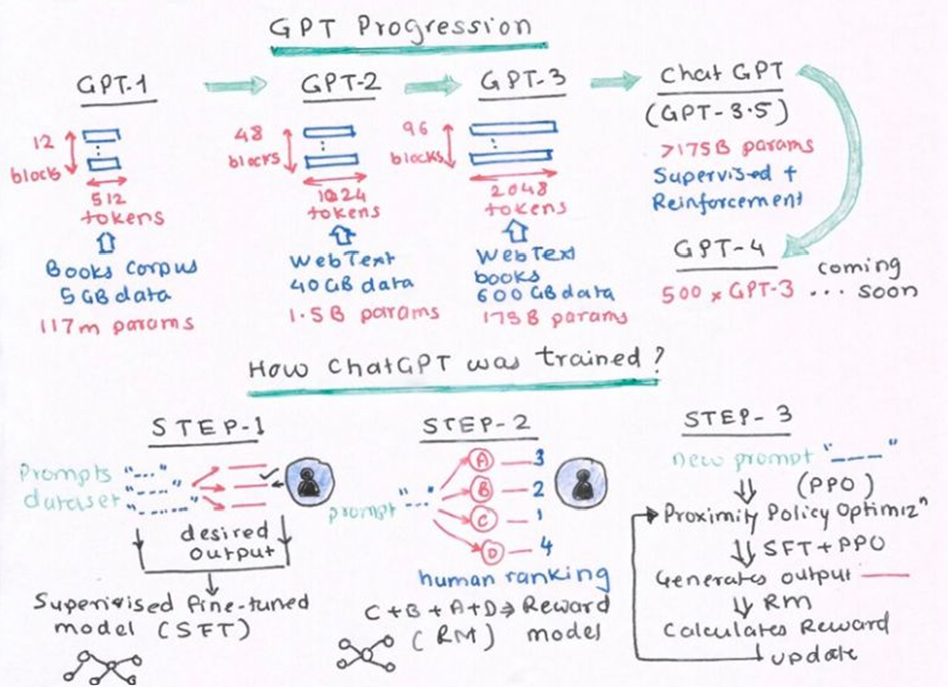 GPT Progression
GPT-1
12
blocks
512
tokens
Books Corpus
5 GB data
117m params
GPT-2
48
blocks
1024
tokens
WebText
40 GB data
1.5B params
GPT-3
96
blocks
2048
tokens
WebText
books
600 GB data
175B params
Chat GPT
(GPT-3.5)
>175B params
Supervised +
Reinforcement
GPT-4
500 x GPT-3 ... coming
soon
How ChatGPT was trained?
STEP-1
Prompts
dataset
desired
output
Supervised fine-tuned
model (SFT)
STEP-2
prompt
A 3
B 2
C 1
D 4
human ranking
C+B+A+D⇒ Reward
(RM) model
STEP-3
new prompt "----"
(PPO)
Proximity Policy Optimizⁿ
SFT+PPO
Generates output
RM
Calculates Reward
update